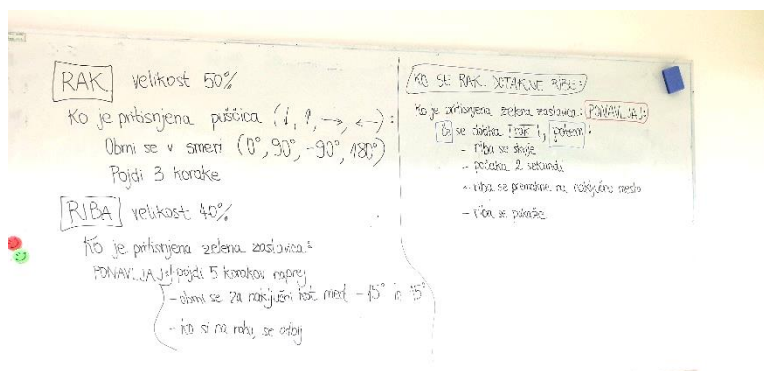 RAK velikost 50%
Ko je pritisnjena puščica (↓, ↑, →, ←):
Obrni se v smeri (0°, 90°, -90°, 180°)
Pojdi 3 korake
RIBA velikost 40%
Ko je pritisnjena zelena zastavica:
PONAVLJAJ: pojdi 5 korakov naprej
- obrni se za naključni kot med -15° in 15°
- ko si na robu, se odbij
KO SE RAK DOTAKNE RIBE:
Ko je pritisnjena zelena zastavica: PONAVLJAJ:
Če se dotika rak, potem:
- riba se skrije
- počaka 2 sekundi
- riba se premakne na naključno mesto
- riba se pokaže